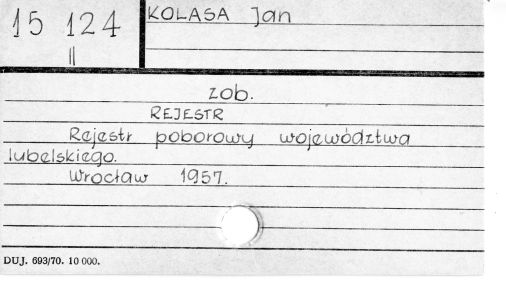 15 124
II
KOLASA Jan
zob.
REJESTR
Rejestr poborowy województwa
lubelskiego.
Wrocław 1957.
DUJ. 693/70. 10 000.